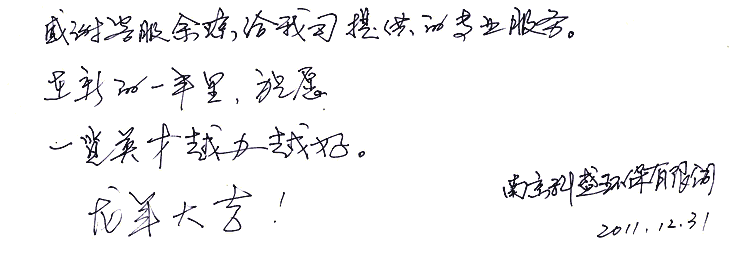 感谢客服余婷给我司提供的专业服务。
在新的一年里，祝愿
一览英才越办越好。
龙年大吉！
南京科盛环保有限公司
2011.12.31